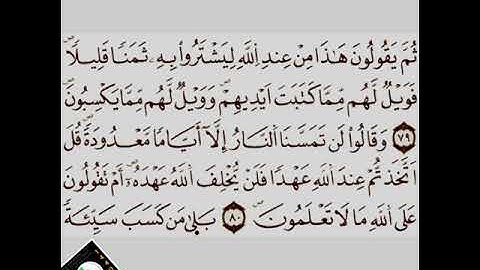 ثُمَّ يَقُولُونَ هَـٰذَا مِنْ عِندِ ٱللَّهِ لِيَشْتَرُوا۟ بِهِۦ ثَمَنًا قَلِيلًا ۖ
فَوَيْلٌ لَّهُم مِّمَّا كَتَبَتْ أَيْدِيهِمْ وَوَيْلٌ لَّهُم مِّمَّا يَكْسِبُونَ
٧٩ وَقَالُوا۟ لَن تَمَسَّنَا ٱلنَّارُ إِلَّآ أَيَّامًا مَّعْدُودَةً ۚ قُلْ
أَتَّخَذْتُمْ عِندَ ٱللَّهِ عَهْدًا فَلَن يُخْلِفَ ٱللَّهُ عَهْدَهُۥٓ ۖ أَمْ تَقُولُونَ
عَلَى ٱللَّهِ مَا لَا تَعْلَمُونَ ٨٠ بَلَىٰ مَن كَسَبَ سَيِّئَةً